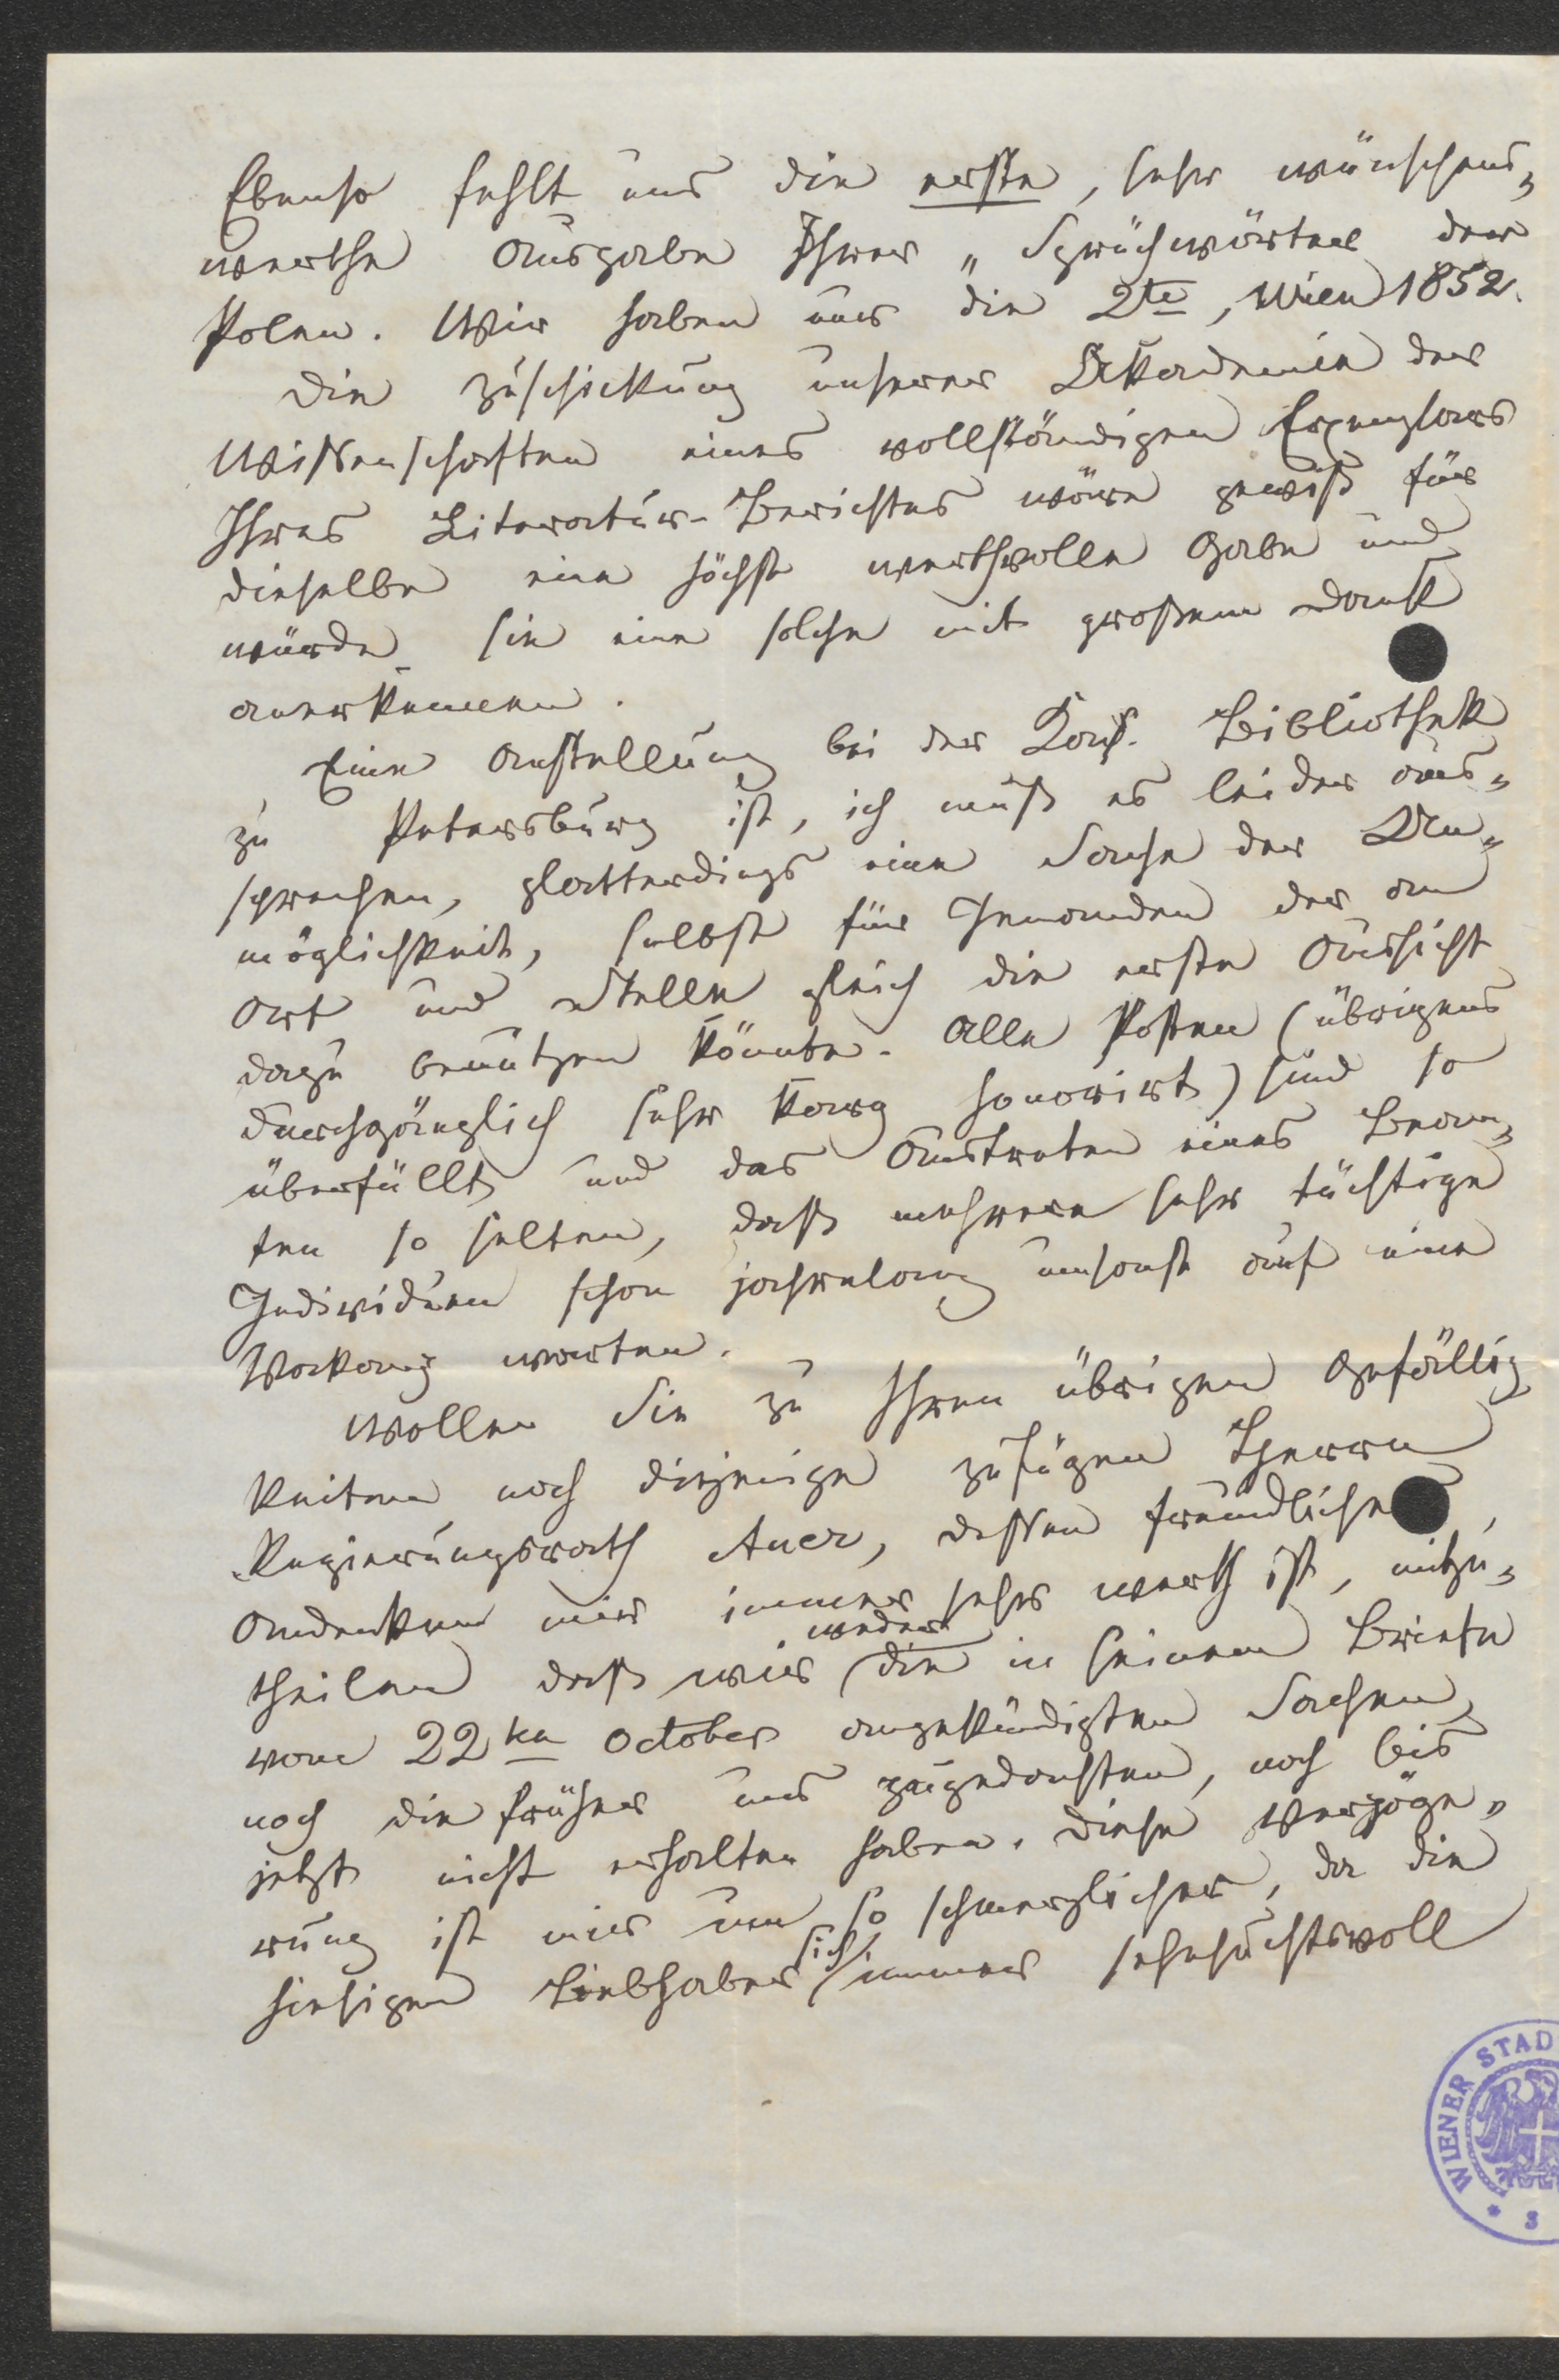 Ebenso fehlt uns die erste, sehr wünschens„
werthe Ausgabe Ihrer „Sprüchwörter der
Polen. Wir haben nur die 2te, Wien 1852.
Die Zuschickung unserer Akademie der
Wissenschaften eines vollständigen Exemplars
Ihres Literatur-Berichtes wäre gewiß für
dieselbe eine höchst werthvolle Gabe und
würde sie eine solche mit großem Dank
anerkennen.
Eine Anstellung bei der Kais. Bibliothek
zu Petersburg ist, ich muß es leider aus„
sprechen, platterdings eine Sache der Un„
möglichkeit, selbst für Jemanden der an
Ort und Stelle gleich die erste Aussicht
dazu benützen könnte. Alle Posten (übrigens
durchgänglich sehr karg honorirt) sind so
überfüllt und das Austreten eines Beam„
ten so selten, daß mehrere sehr tüchtige
Individuen schon jahrelang umsonst auf eine
Vakanz warten.
Wollen Sie zu Ihren übrigen Gefällig
keiten noch diejenige zufügen Herrn
Regierungsrath Auer, dessen freundliches
Andenken mir immer sehr werth ist, mitzu„
theilen daß wir weder die in seinem Briefe
vom 22ten October angekündigten Sachen,
noch die früher uns zugedachten, noch bis
jetzt nicht erhalten haben. Diese Verzöge„
rung ist mir um so schmerzlicher, da die
hiesigen Liebhaber sich immer sehnsuchtsvoll
WIENER STAD